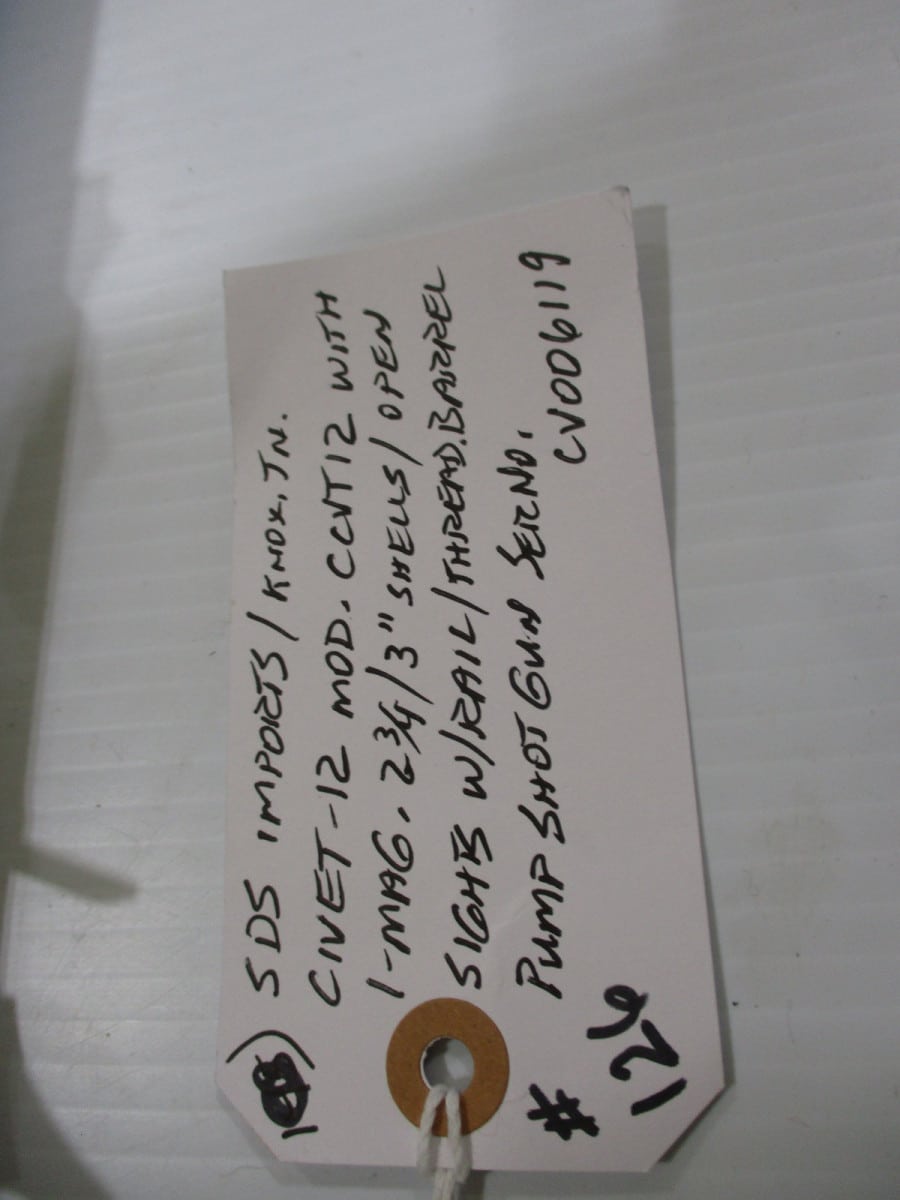 1 ) SDS IMPORTS/KNOX, TN.
CIVET-12 MOD. CCVT12 WITH
1-MAG. 2 3/4/3" SHELLS/OPEN
SIGHTS W/RAIL/THREAD.BARREL
PUMP SHOT GUN SER NO.
CV006119
# 126